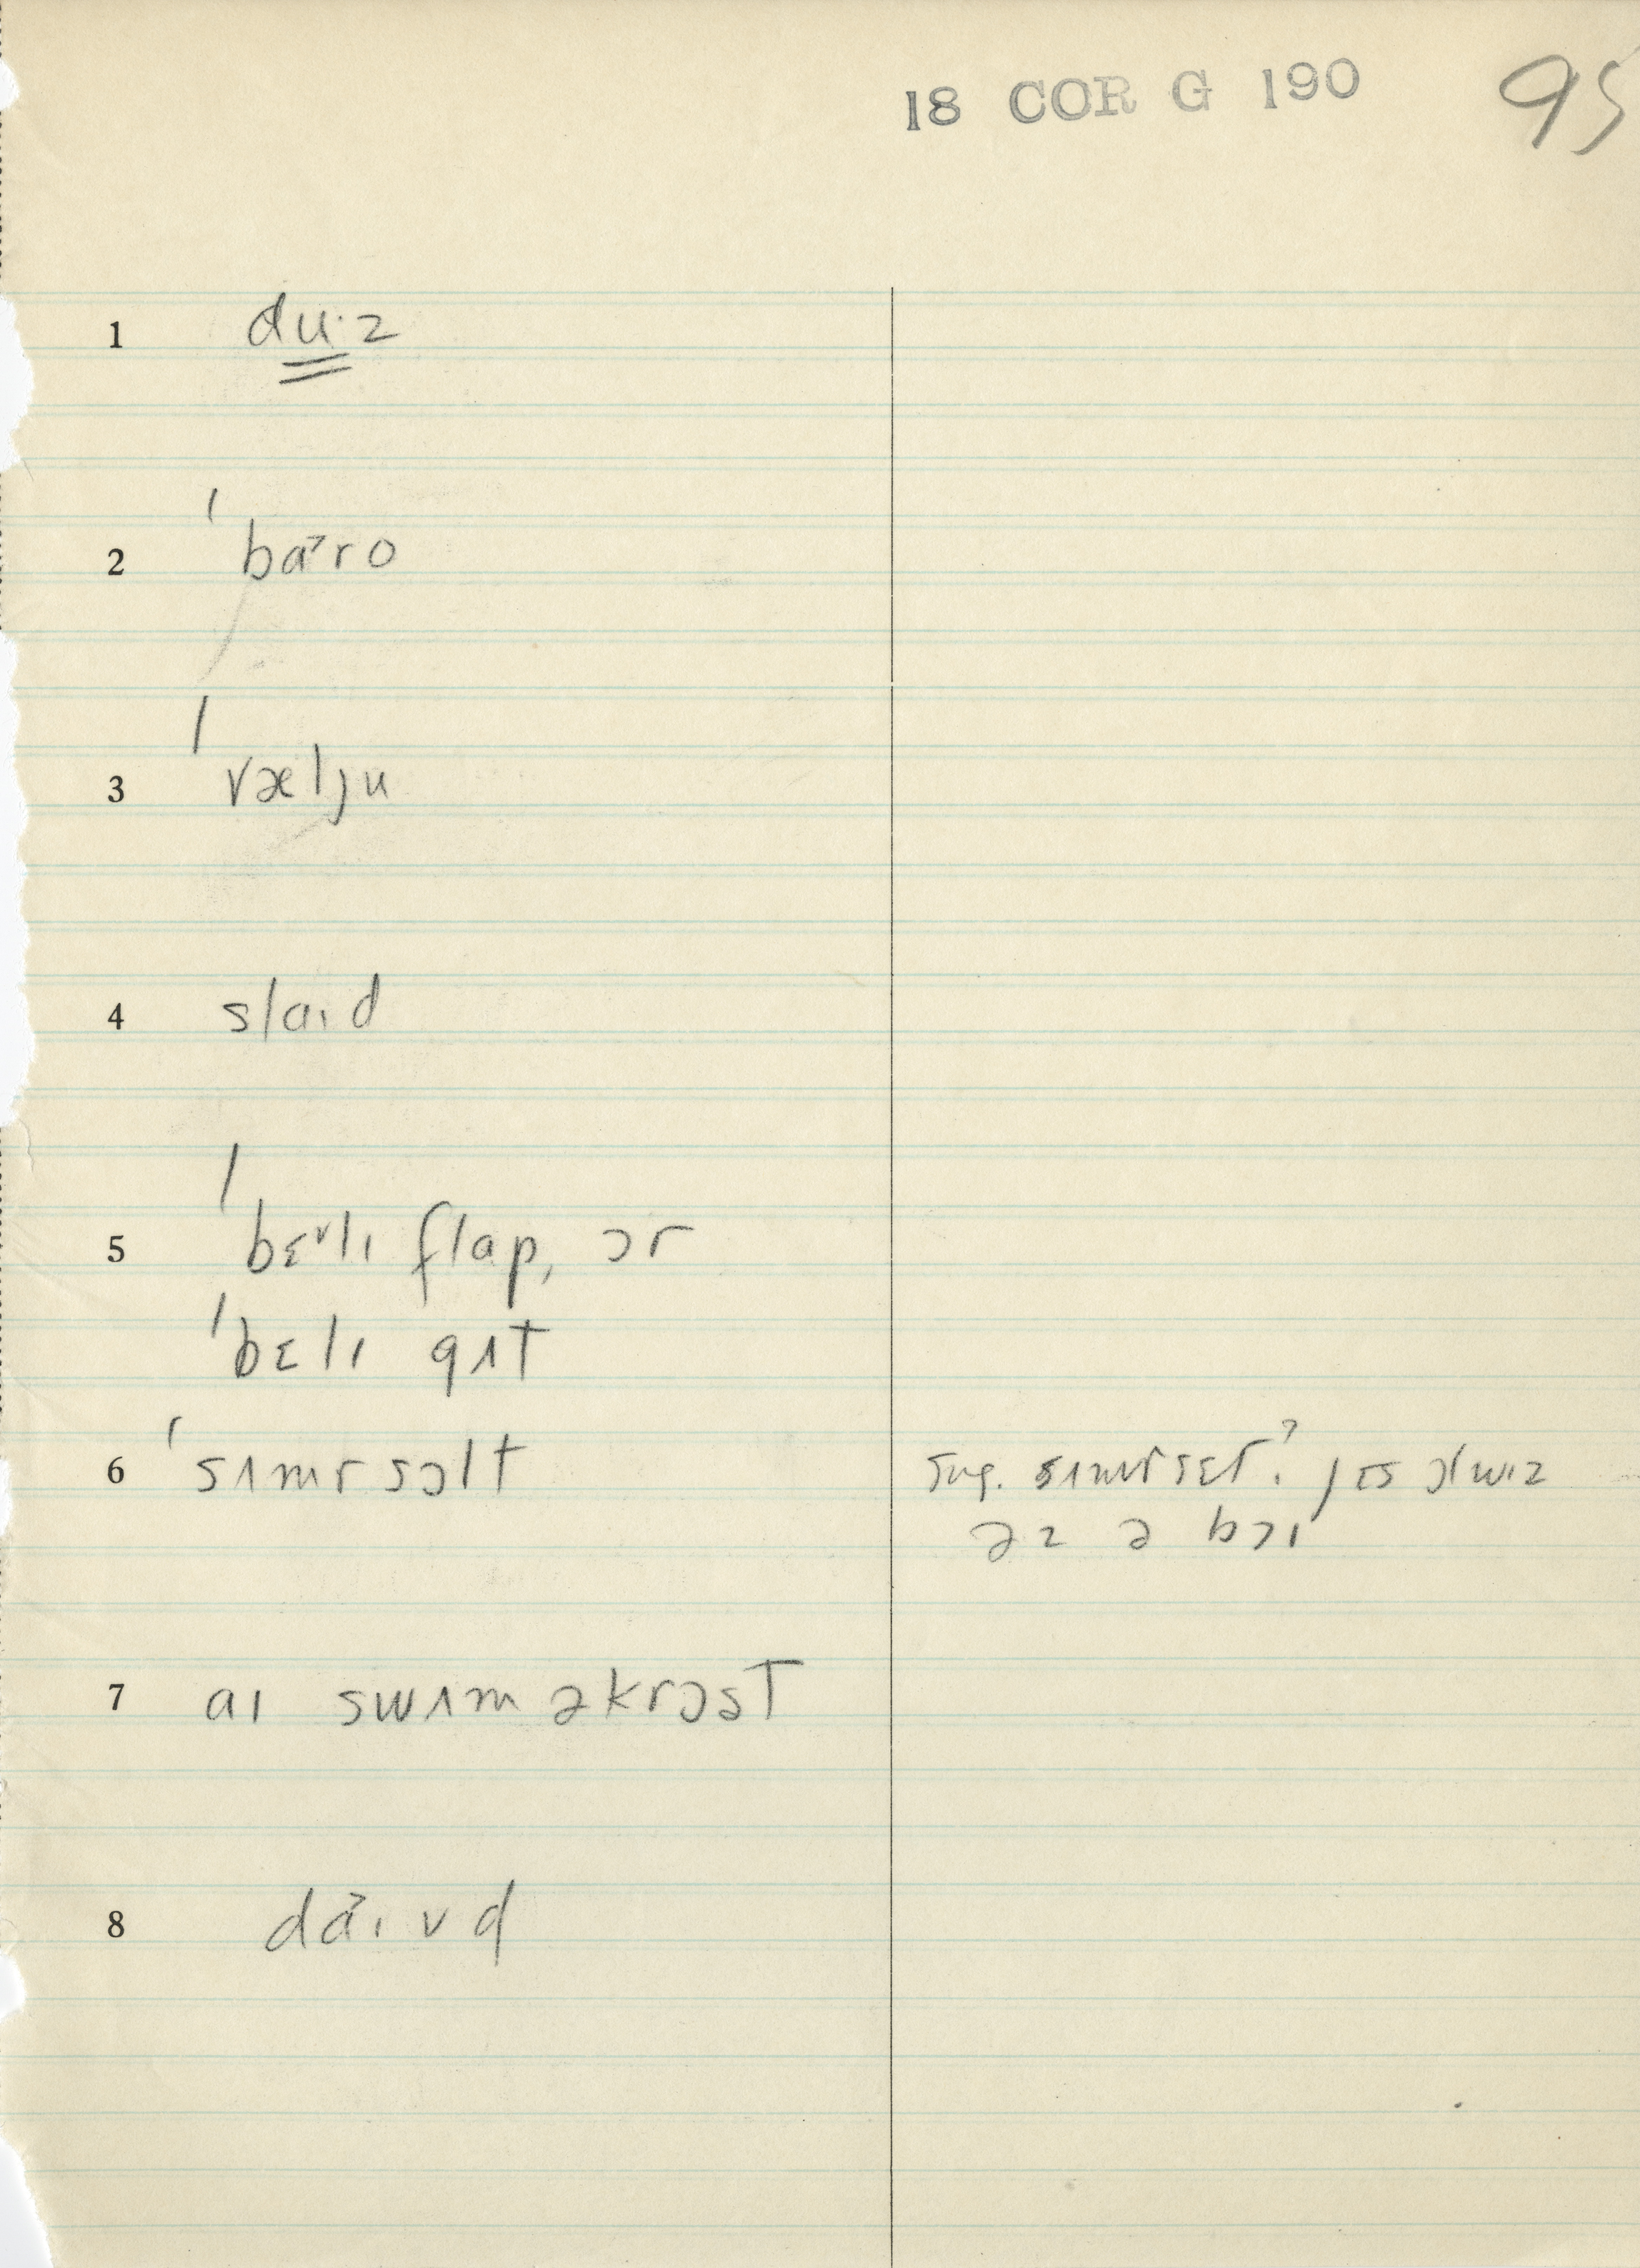 18 COR G 190 95
1 du·z
2 ˈba˃ro
3 ˈvælju
4 slaɪd
5 ˈbɛ˅lɪ flap, ɔr
ˈbɛlɪ gɪt
6 ˈsɪmrsɔlt sug. sɪmrsɛt? jɛs ɔlwɪz
əz ə bɔɪ
7 aɪ swɪm əkrɔst
8 da˃ɪvd